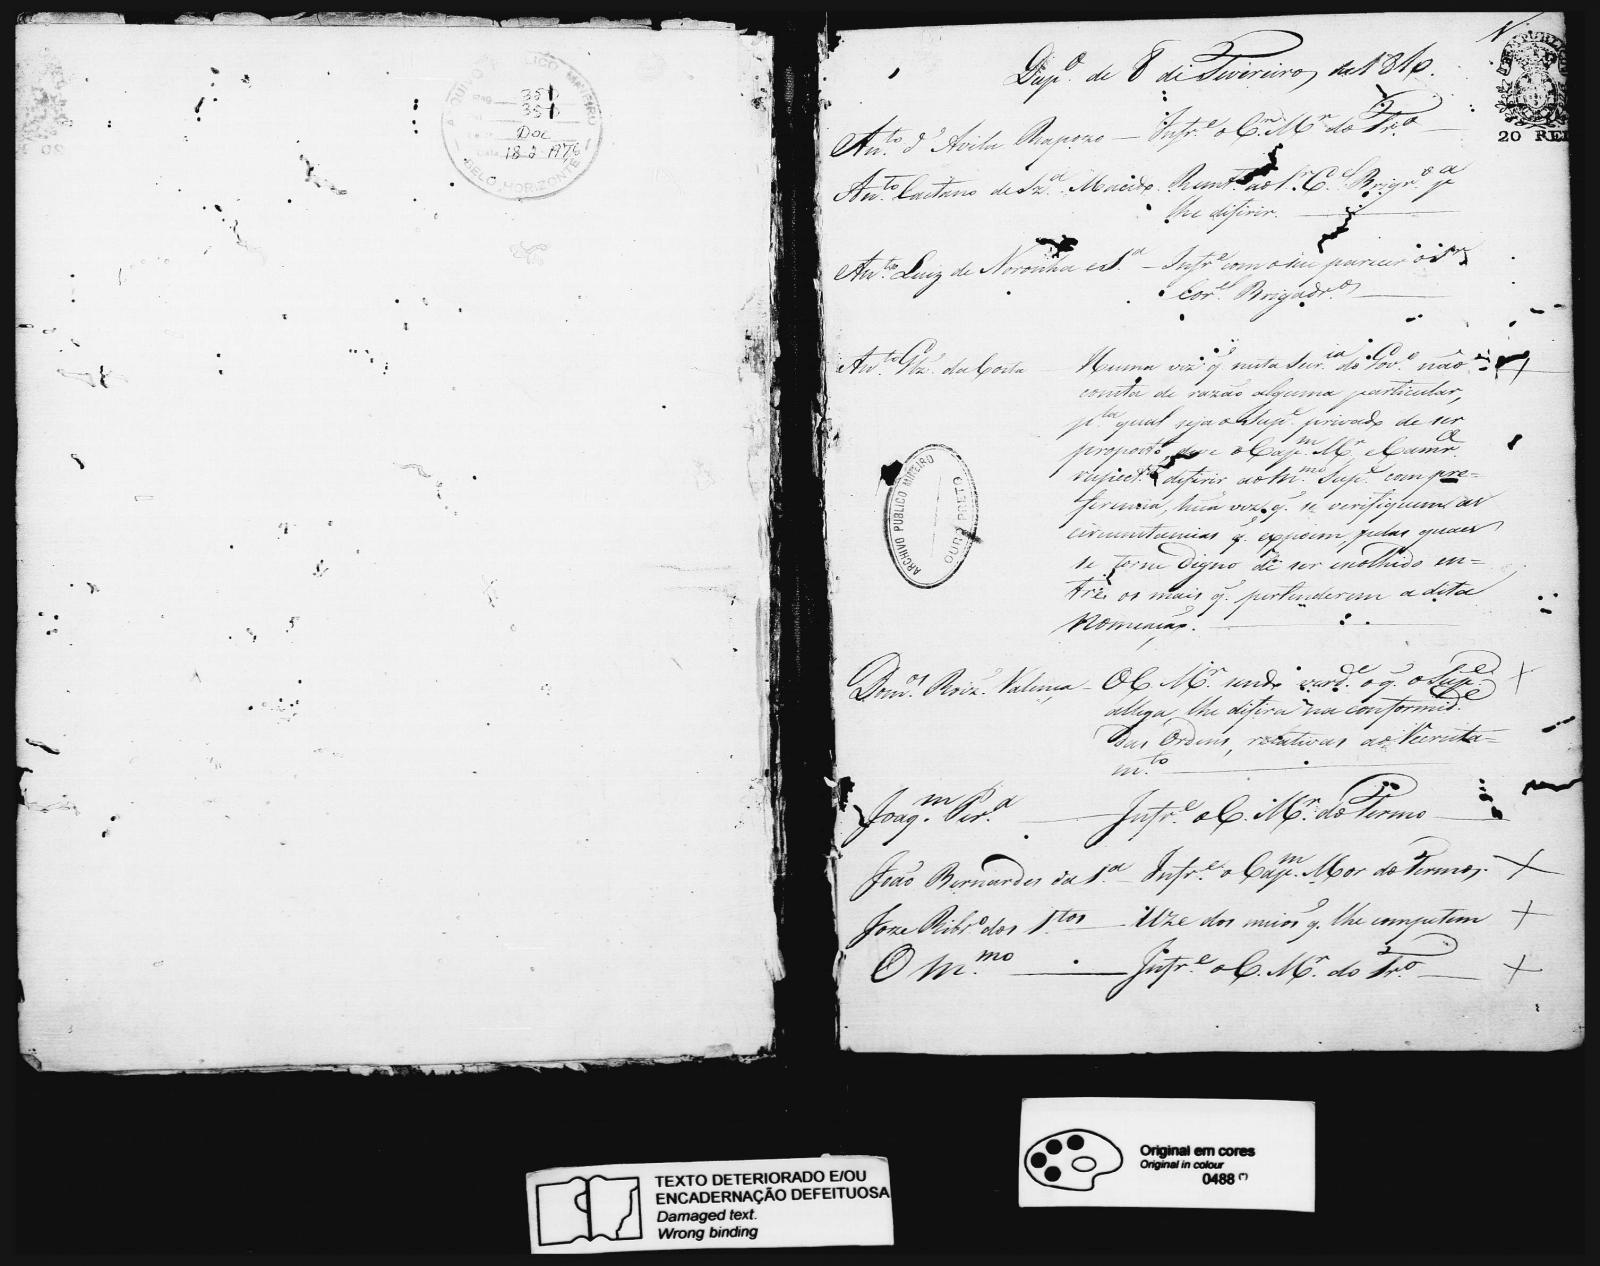 ARQUIVO PUBLICO MINEIRO
351
351
Doc
18-2-1976
BELO HORIZONTE
Desp.º de 8 de Fevereiro de 1816.
20 REI
Ant.to d'Avila Rapozo — Infr.e o C.m M.r do Tr.o
Ant.to Caetano de Sz.a Macedo Remt. ao Sr. C.el Brigr.o p.a
lhe diferir.
Ant.to Luiz de Noronha e S.a — Infr.e com o seu parecer o Sr.
Cor.el Brigadr.o
Ant.to Glz. da Costa Huma vez q. nesta Secr.ia do Gov.o não
consta de razão alguma particular,
p.la qual seja o Sup.e privado de ser
proposto, deve o Cap.m M.r e Camr.a
respect.a diferir ao m.mo Sup.e com pre=
ferencia, hua vez q. se verifiquem as
circumstancias q. expoem, pelas quaes
se torne Digno de ser escolhido en=
tre os mais q. pertenderem a dita
Nomeação.
Dom.os Roiz. Valença — O C. M.r sendo verd.e o q. o Sup.e
allega, lhe difira na conformid.e
das Ordens, relativas ao Recruta=
m.to
Joaq.m Per.a — Infr.e o C. M.r do Termo
João Bernardes da S.a — Infr.e o Cap.m Mor do Termo.
Joze Ribr.o dos S.tos — Uze dos meios q. lhe competem
O m.mo — Infr.e o C. M.r do Tr.o
ARCHIVO PUBLICO MINEIRO
OURO PRETO
TEXTO DETERIORADO E/OU
ENCADERNAÇÃO DEFEITUOSA
Damaged text.
Wrong binding
Original em cores
Original in colour
0488 (*)